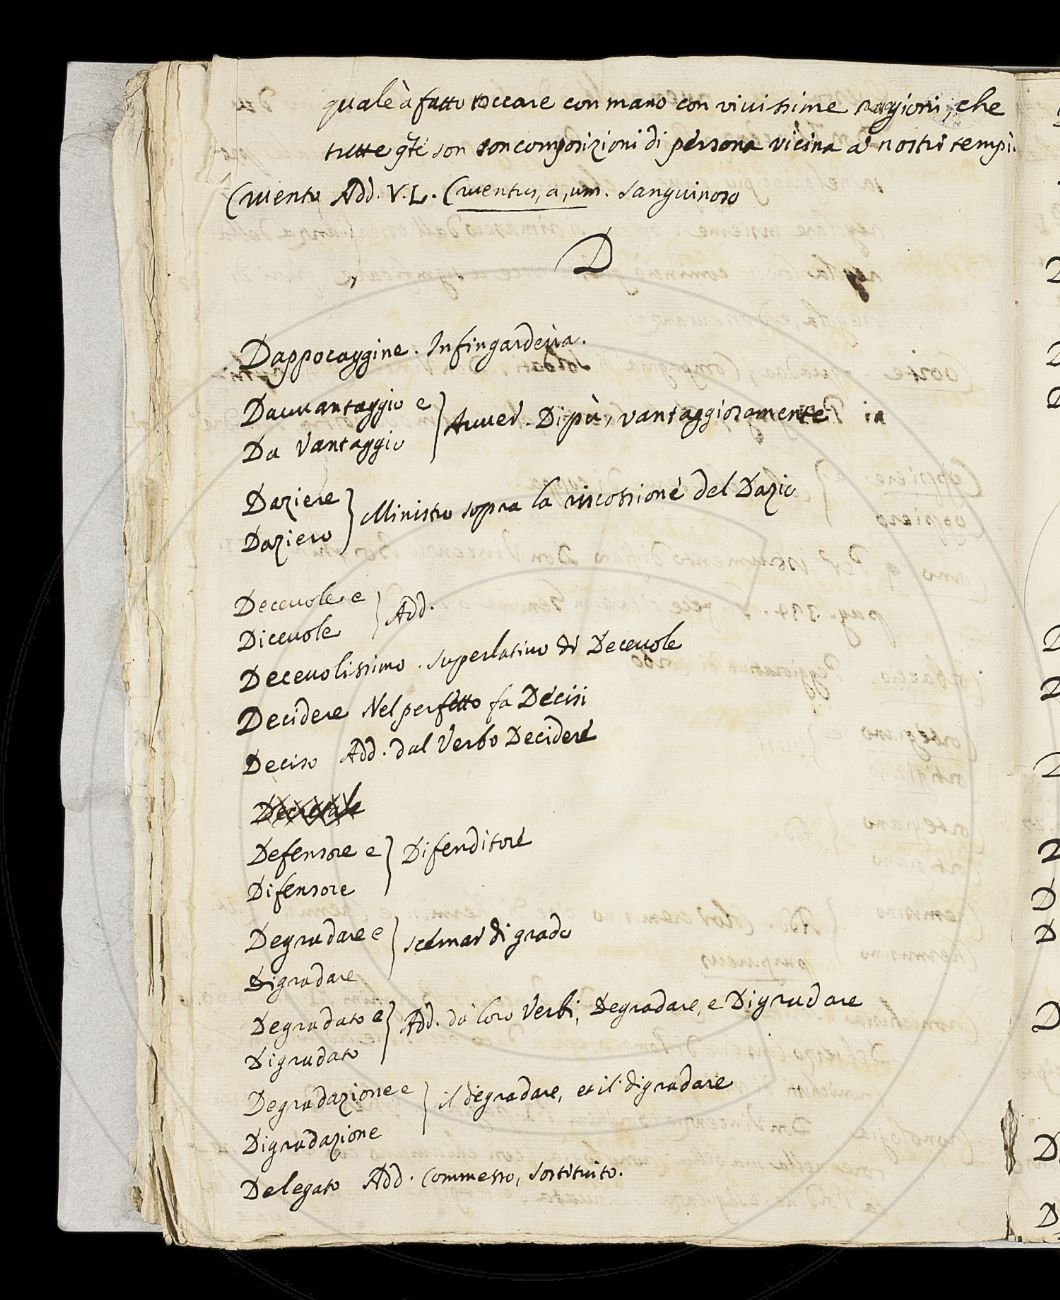 quale à fatto toccare con mano con vivissime ragioni, che
tutte q.te son son composizioni di persona vicina a' nostri tempi.
Cruento Add. V. L. Cruentus, a, um. Sanguinoso
D
Dappocaggine. Infingarderia.
Davvantaggio e
Da Vantaggio } Avver. Dipiù, vantaggiosamente
Daziere
Daziero } Ministro sopra la riscossione del Dazio
Decevole e
Dicevole } Add.
Decevolissimo. Superlativo di Decevole
Decidere Nel perfetto fa Decisi
Deciso Add. dal Verbo Decidere
Decretale
Defensore e
Difensore } Difenditore
Degradare e
Digradare } scemar di grado
Degradato e
Digradato } Add. da' loro Verbi, Degradare, e Digradare
Degradazione e
Digradazione } il degradare, et il digradare
Delegato Add. Commesso, Sostituito.